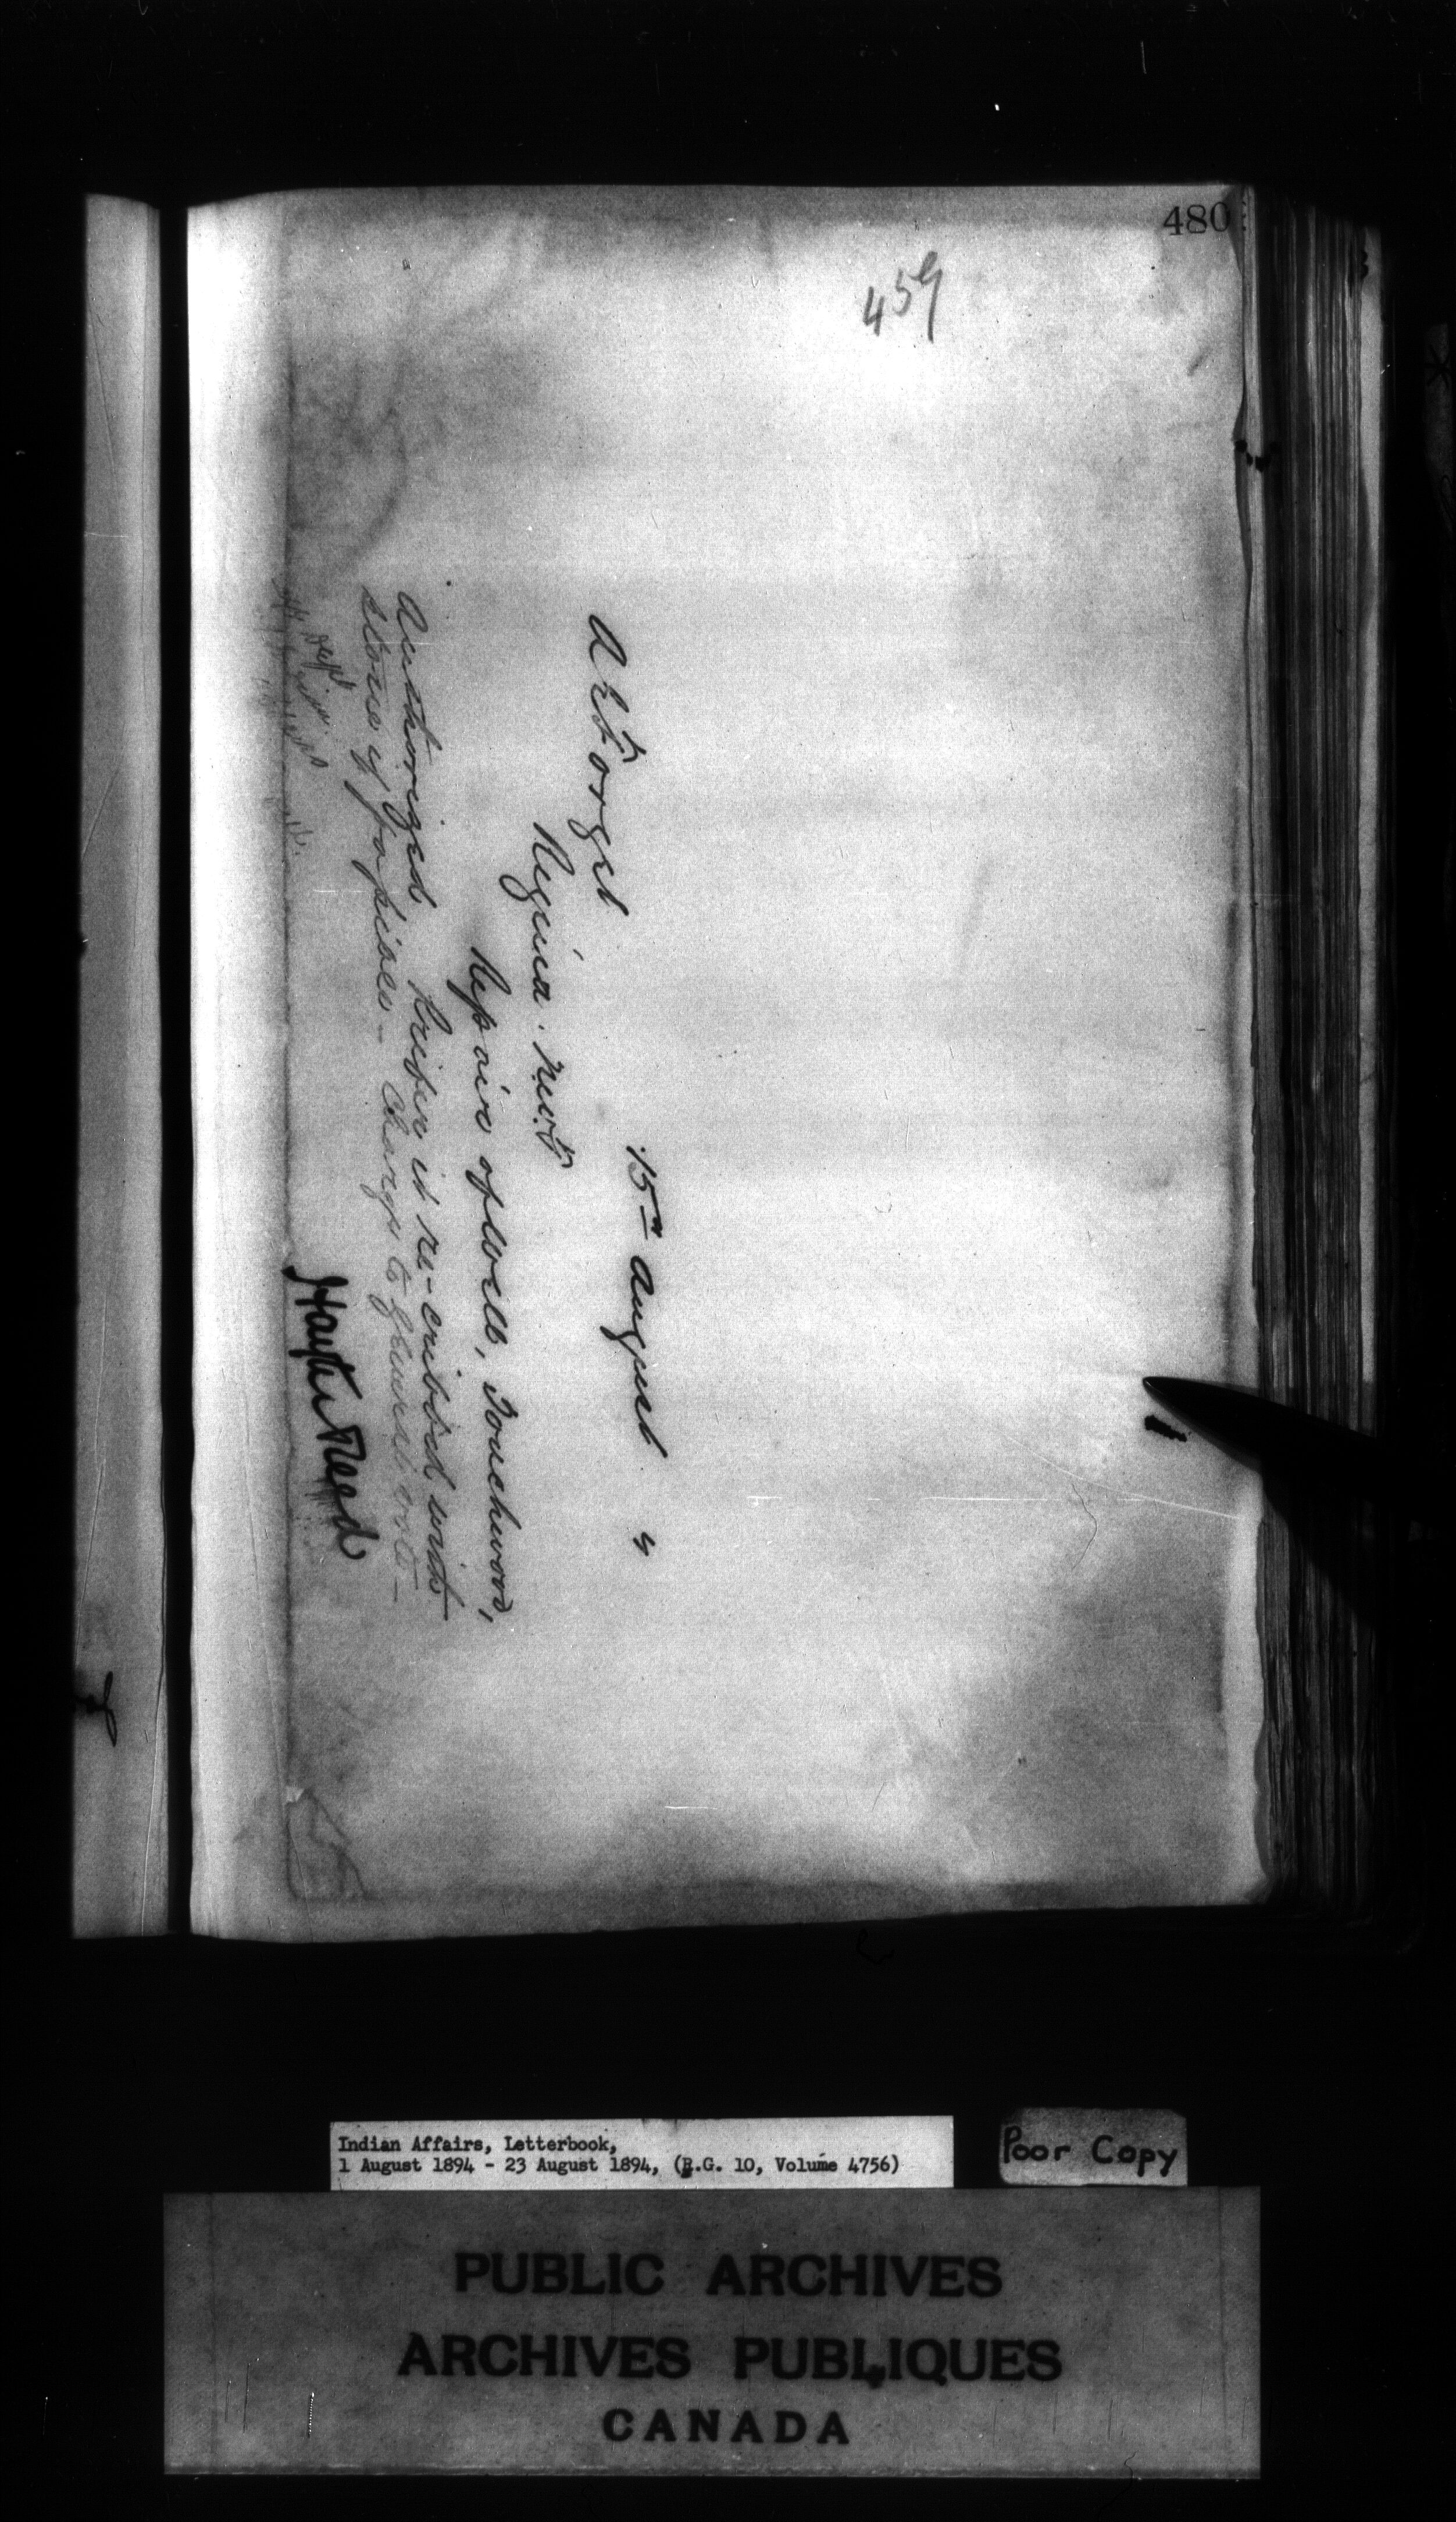 480
459
15th August 4
A E Forget
Regina. N.W.T
Repair of well, Touchwood,
Authorized
is re-cribbed with
stone if possible - Charge to General vote -
Hayter Reed
Indian Affairs, Letterbook,
1 August 1894 - 23 August 1894, (R.G. 10, Volume 4756)
Poor Copy
PUBLIC ARCHIVES
ARCHIVES PUBLIQUES
CANADA